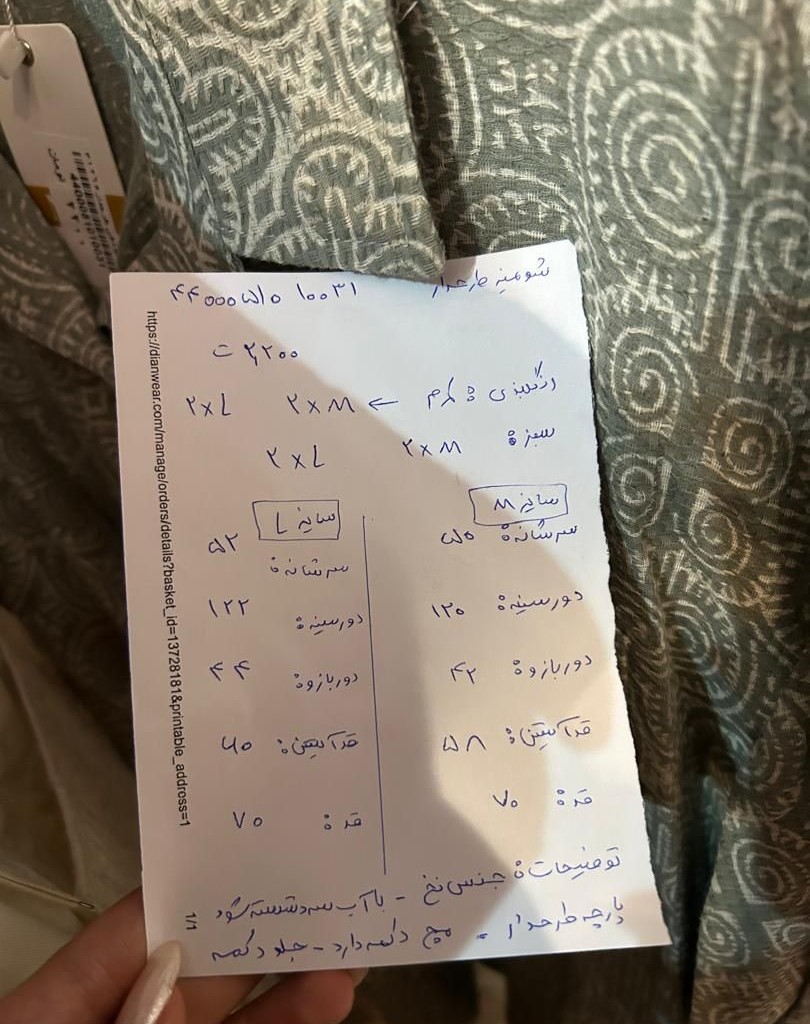 شومیز طرحدار ۴۴۰۰۰۵۱۰ ۱۰۰۳۱
۲,۲۰۰ ت
رنگبندی: کرم ← ۲xM ۲xL
سبز: ۲xM ۲xL
سایز M
سرشانه: ۵۰
دورسینه: ۱۲۰
دوربازو: ۴۲
قدآستین: ۵۸
قد: ۷۰
سایز L
سرشانه: ۵۲
دورسینه: ۱۲۲
دوربازو: ۴۴
قدآستین: ۶۰
قد: ۷۰
توضیحات: جنس نخ - باآب سرد شسته شود
پارچه طرحدار - مچ دکمه دارد - جلو دکمه
https://dianwear.com/manage/orders/details?basket_id=13728181&printable_address=1
1/1
تومان